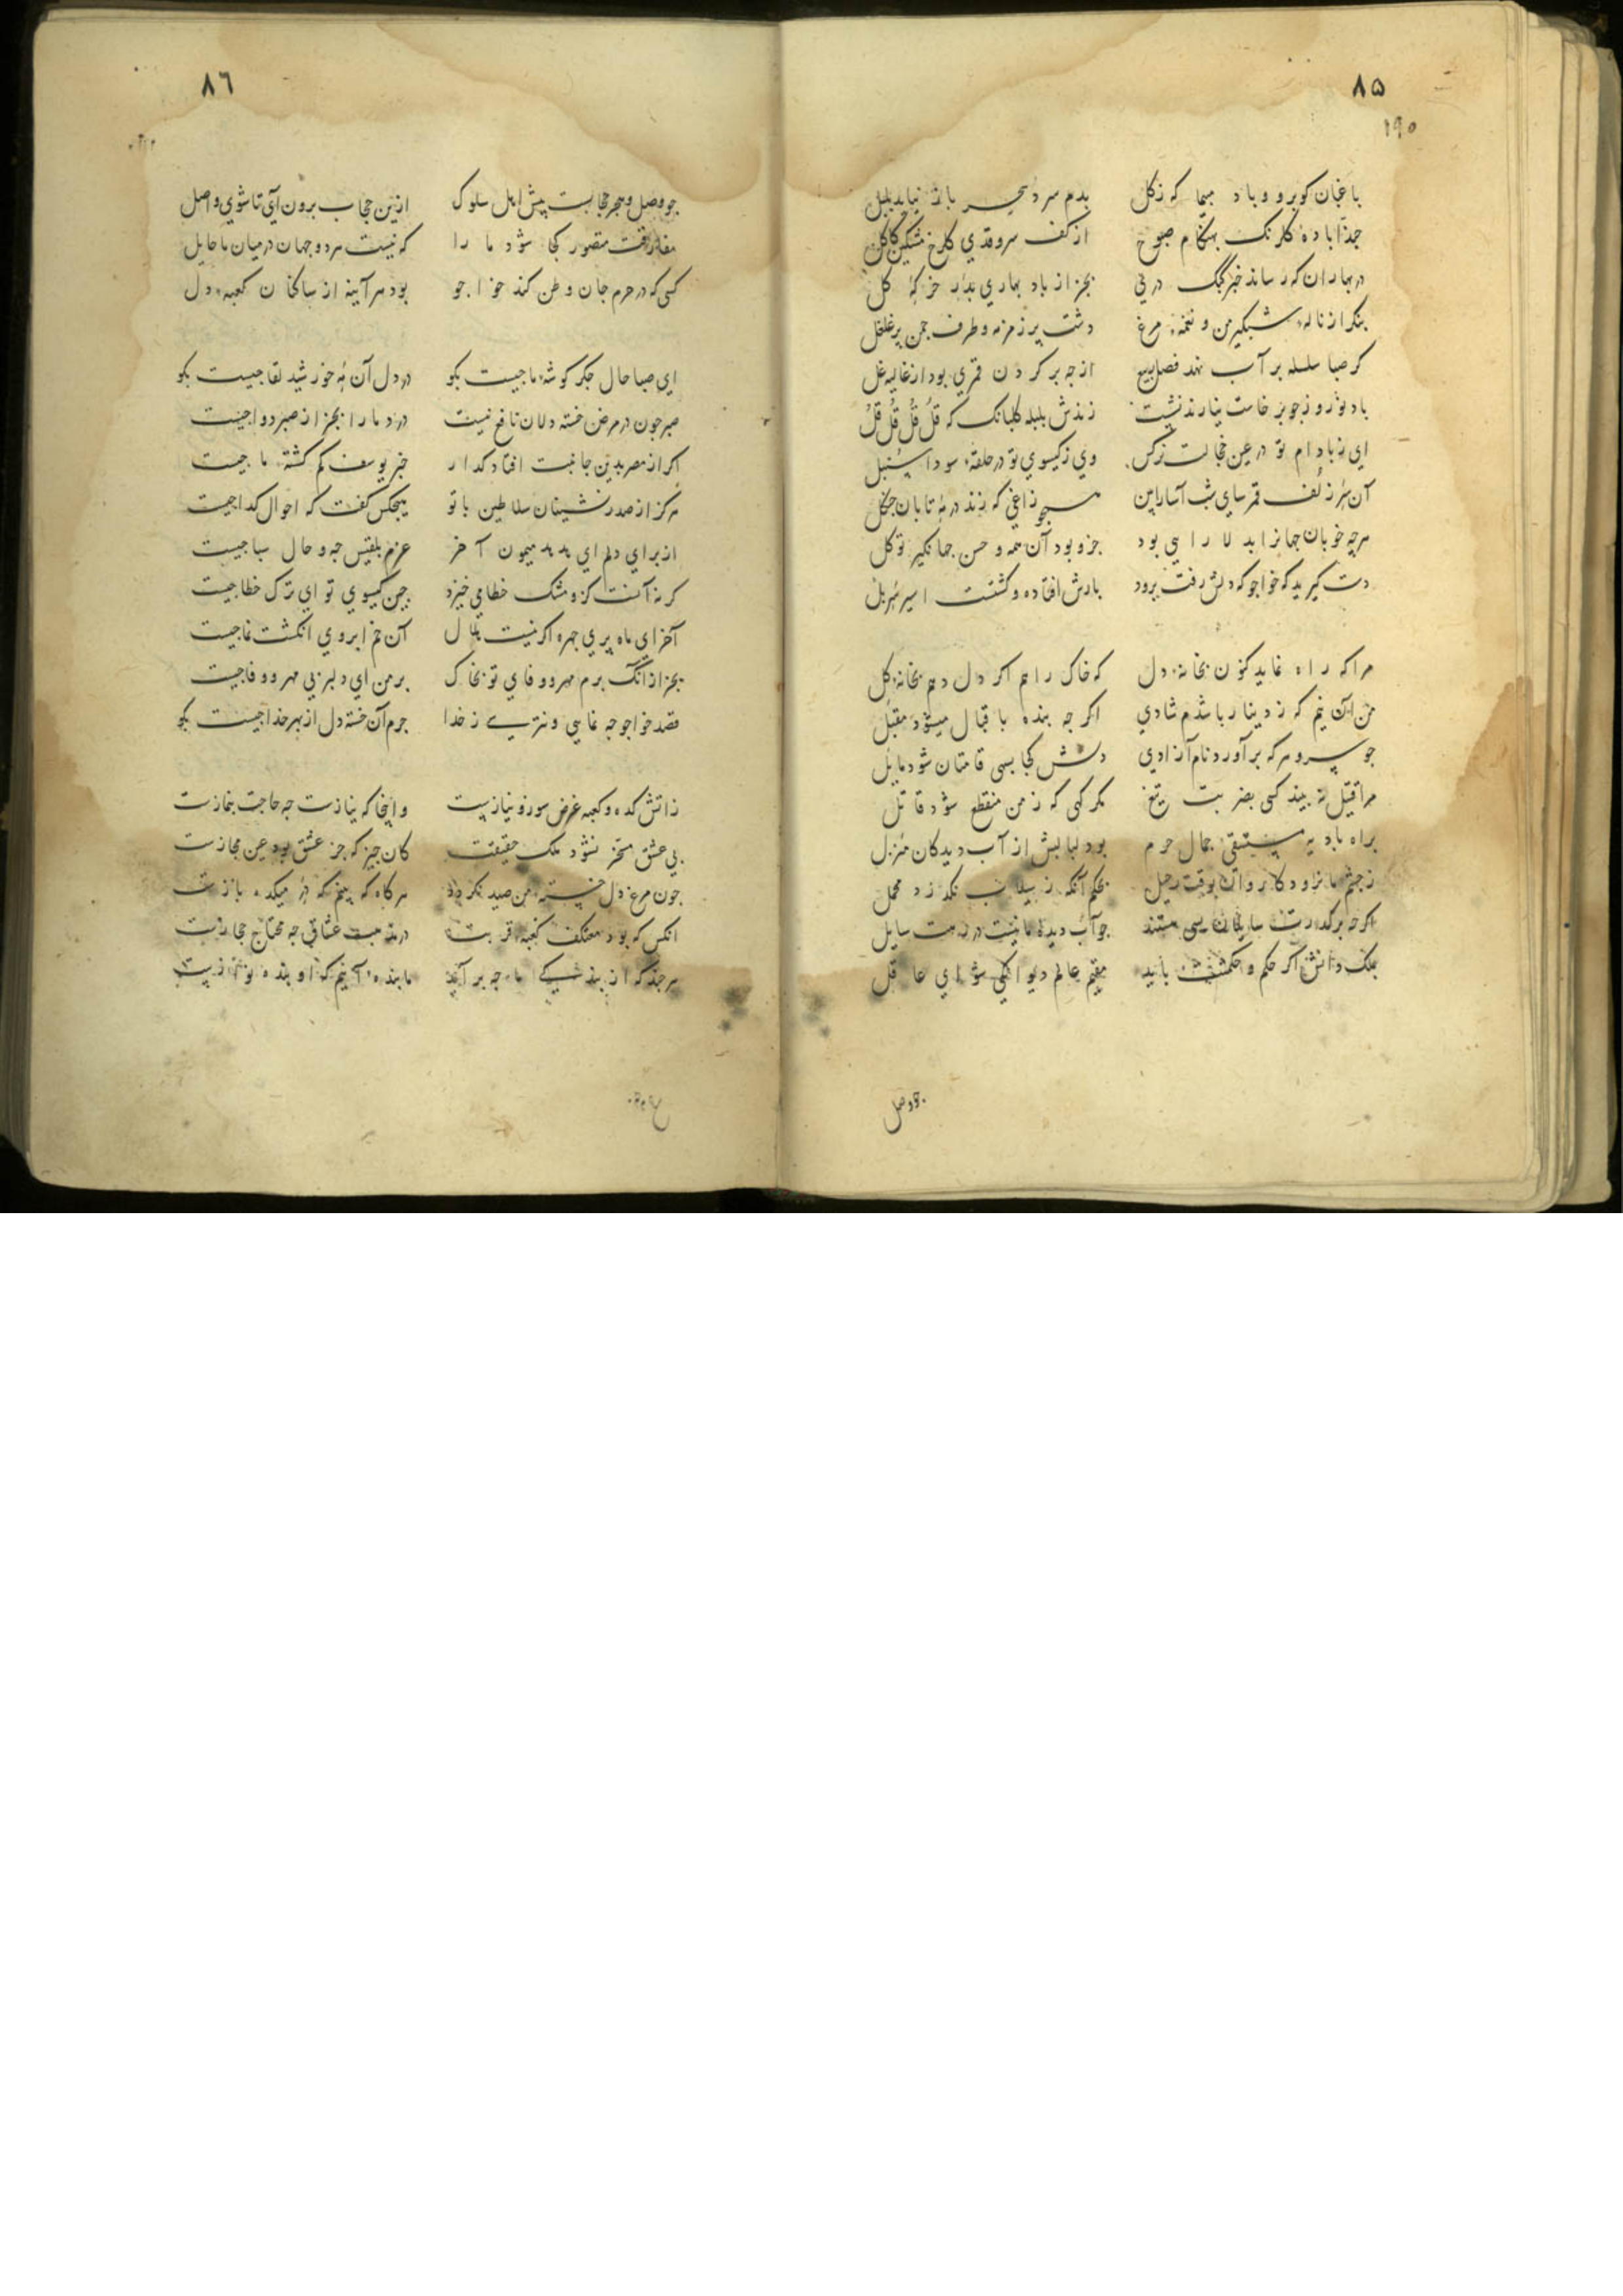 ٨۵
١٩٠
باغبان کو برو و باد مپیما که ز کل بدم سرد سحر باز نیاید بلبل
حبذا باده کلرنک بهنکام صبوح از کف سروقدی کلرخ مشکین کاکل
در بهاران که رساند خبر کبک دری بجز از باد بهاری بدر خرکه کل
بنکر از ناله شبکیر من و نغمه مرغ دشت پر زمزمه و طرف جمن پر غلغل
کر صبا سلسله بر آب نهد فصل ربیع از جه بر کردن قمری بود از غالیه غل
باد نوروز جو بر خاست نیارند نشست زندش بلبله کلبانک که قل قل قل قل
ای ز بادام تو در عین خجالت نرکس وی ز کیسوی تو در حلقه سودا سنبل
آن سر زلف قمرسای شب آسا را بین همجو زاغی که زند در مه تابان جنکل
هرجه خوبان جهانرا بدلارایی بود جزو بود آن همه و حسن جهانکیر تو کل
دست کیرید که خواجو که دلش رفت برود بارش افتاده و کشتست اسیر سر پل
مرا که راه نماید کنون بخانه دل که خاک راهم اکر دل دهم بخانه کل
من آن نیم که ز دینار باشدم شادی اکر جه بنده باقبال میشود مقبل
جو سرو هرکه برآورد نام آزادی دلش کجا بسهی قامتان شود مایل
مرا قتیل نه بیند کسی بضربت تیغ مکر کهی که ز من منقطع شود قاتل
براه بادیه مستسقی جمال حرم بود لبالبش از آب دیدکان منزل
ز جشم ما نرود کاروان بوقت رحیل بحکم آنکه ز سیلاب نکذرد محمل
اکرجه برکذرت سایلان بسی هستند جو آب دیده ما نیست در رهت سایل
بملک دانش اکر حکم و حکمتت باید مقیم عالم دیوانکی شو ای عاقل
جو وصل
٨٦
جو وصل و هجر حجابست پیش اهل سلوک ازین حجاب برون آی تا شوی واصل
مفارقت متصور کجا شود ما را که نیست هر دو جهان در میان ما حایل
کسی که در حرم جان وطن کند خواجو بود هرآینه از ساکنان کعبه دل
ای صبا حال جکر کوشه ما جیست بکو در دل آن مه خورشید لقا جیست بکو
صبر جون در مرض خسته دلان نافع نیست درد ما را بجز از صبر دوا جیست
اکر از مصر بدین جانبت افتاد کذار خبر یوسف کم کشته ما جیست
هرکز از صدرنشینان سلاطین با تو هیجکس کفت که احوال کدا جیست
از برای دلم ای هدهد میمون آخر عزم بلقیس جه و حال سبا جیست
کر نه آنست کزو مشک خطا می خیزد جین کیسوی تو ای ترک خطا جیست
آخر ای ماه پری جهره اکر نیست هلال آن خم ابروی انکشت نما جیست
بجز از آنک برم مهر و وفای تو بخاک بر من ای دلبر بی مهر و وفا جیست
قصد خواجو جه نمایی و نترسی ز خدا جرم آن خسته دل از بهر خدا جیست بکو
ز اتشکده و کعبه غرض سوز و نیازست و اینجا که نیازست جه حاجت بنمازست
بی عشق مسخر نشود ملک حقیقت کان جیز که جز عشق بود عین مجازست
جون مرغ دل خسته من صید نکردد هرکاه که بینم که در میکده بازست
انکس که بود معتکف کعبه قربت در مذهب عشاق جه محتاج حجازست
هرجند که از بندکی ما جه برآید ما بنده آنیم که او بنده نوازست